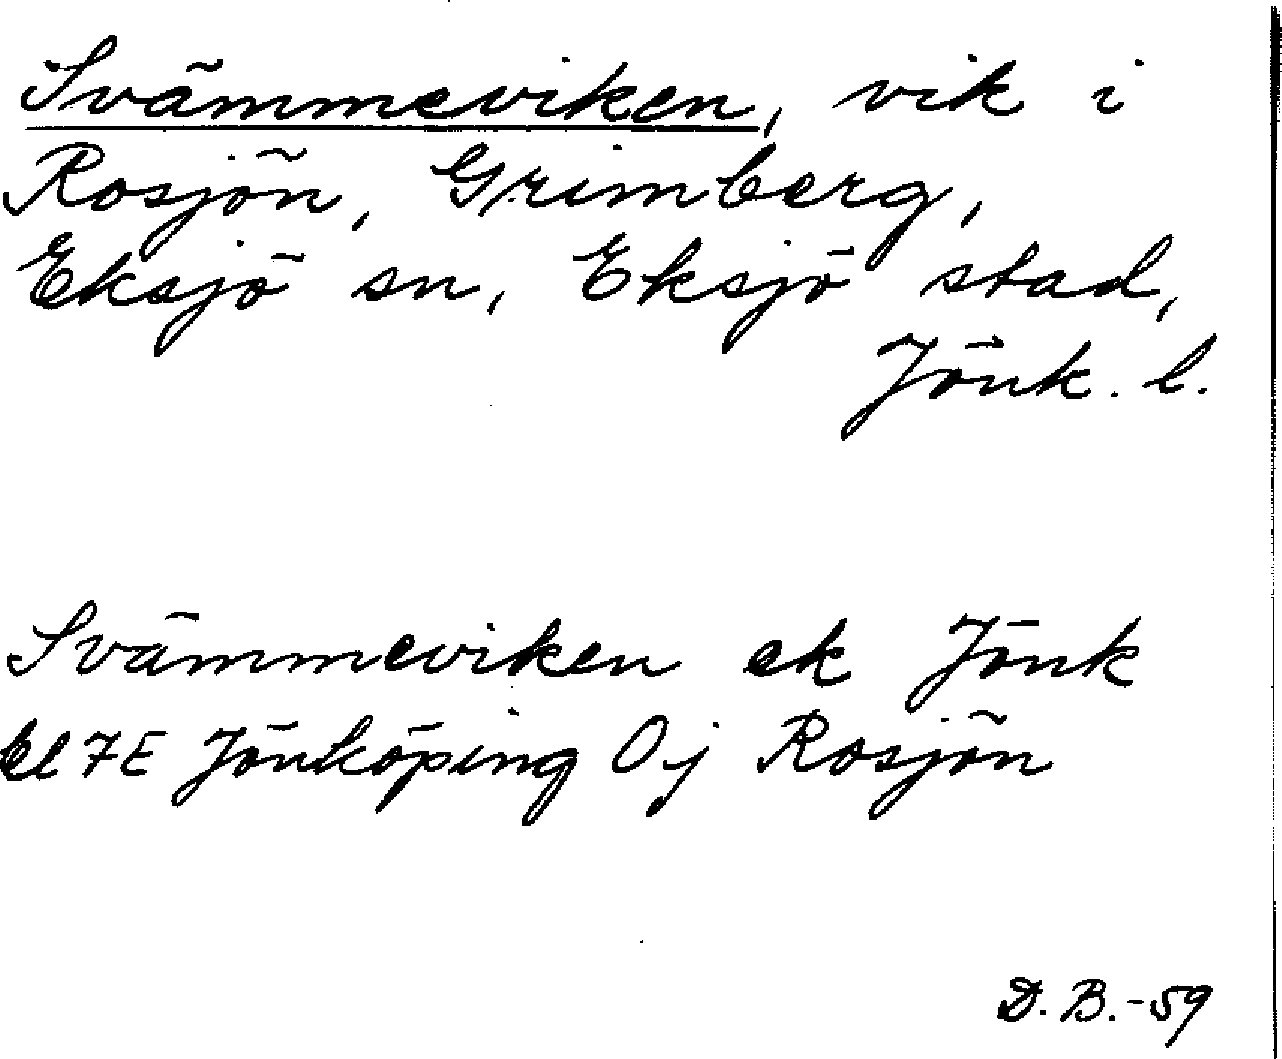 Svämmeviken, vik i
Rosjön, Grimberg,
Eksjö sn, Eksjö stad,
Jönk. l.
Svämmeviken ek Jönk
bl 7E Jönköping Oj Rosjön
D. B. -59